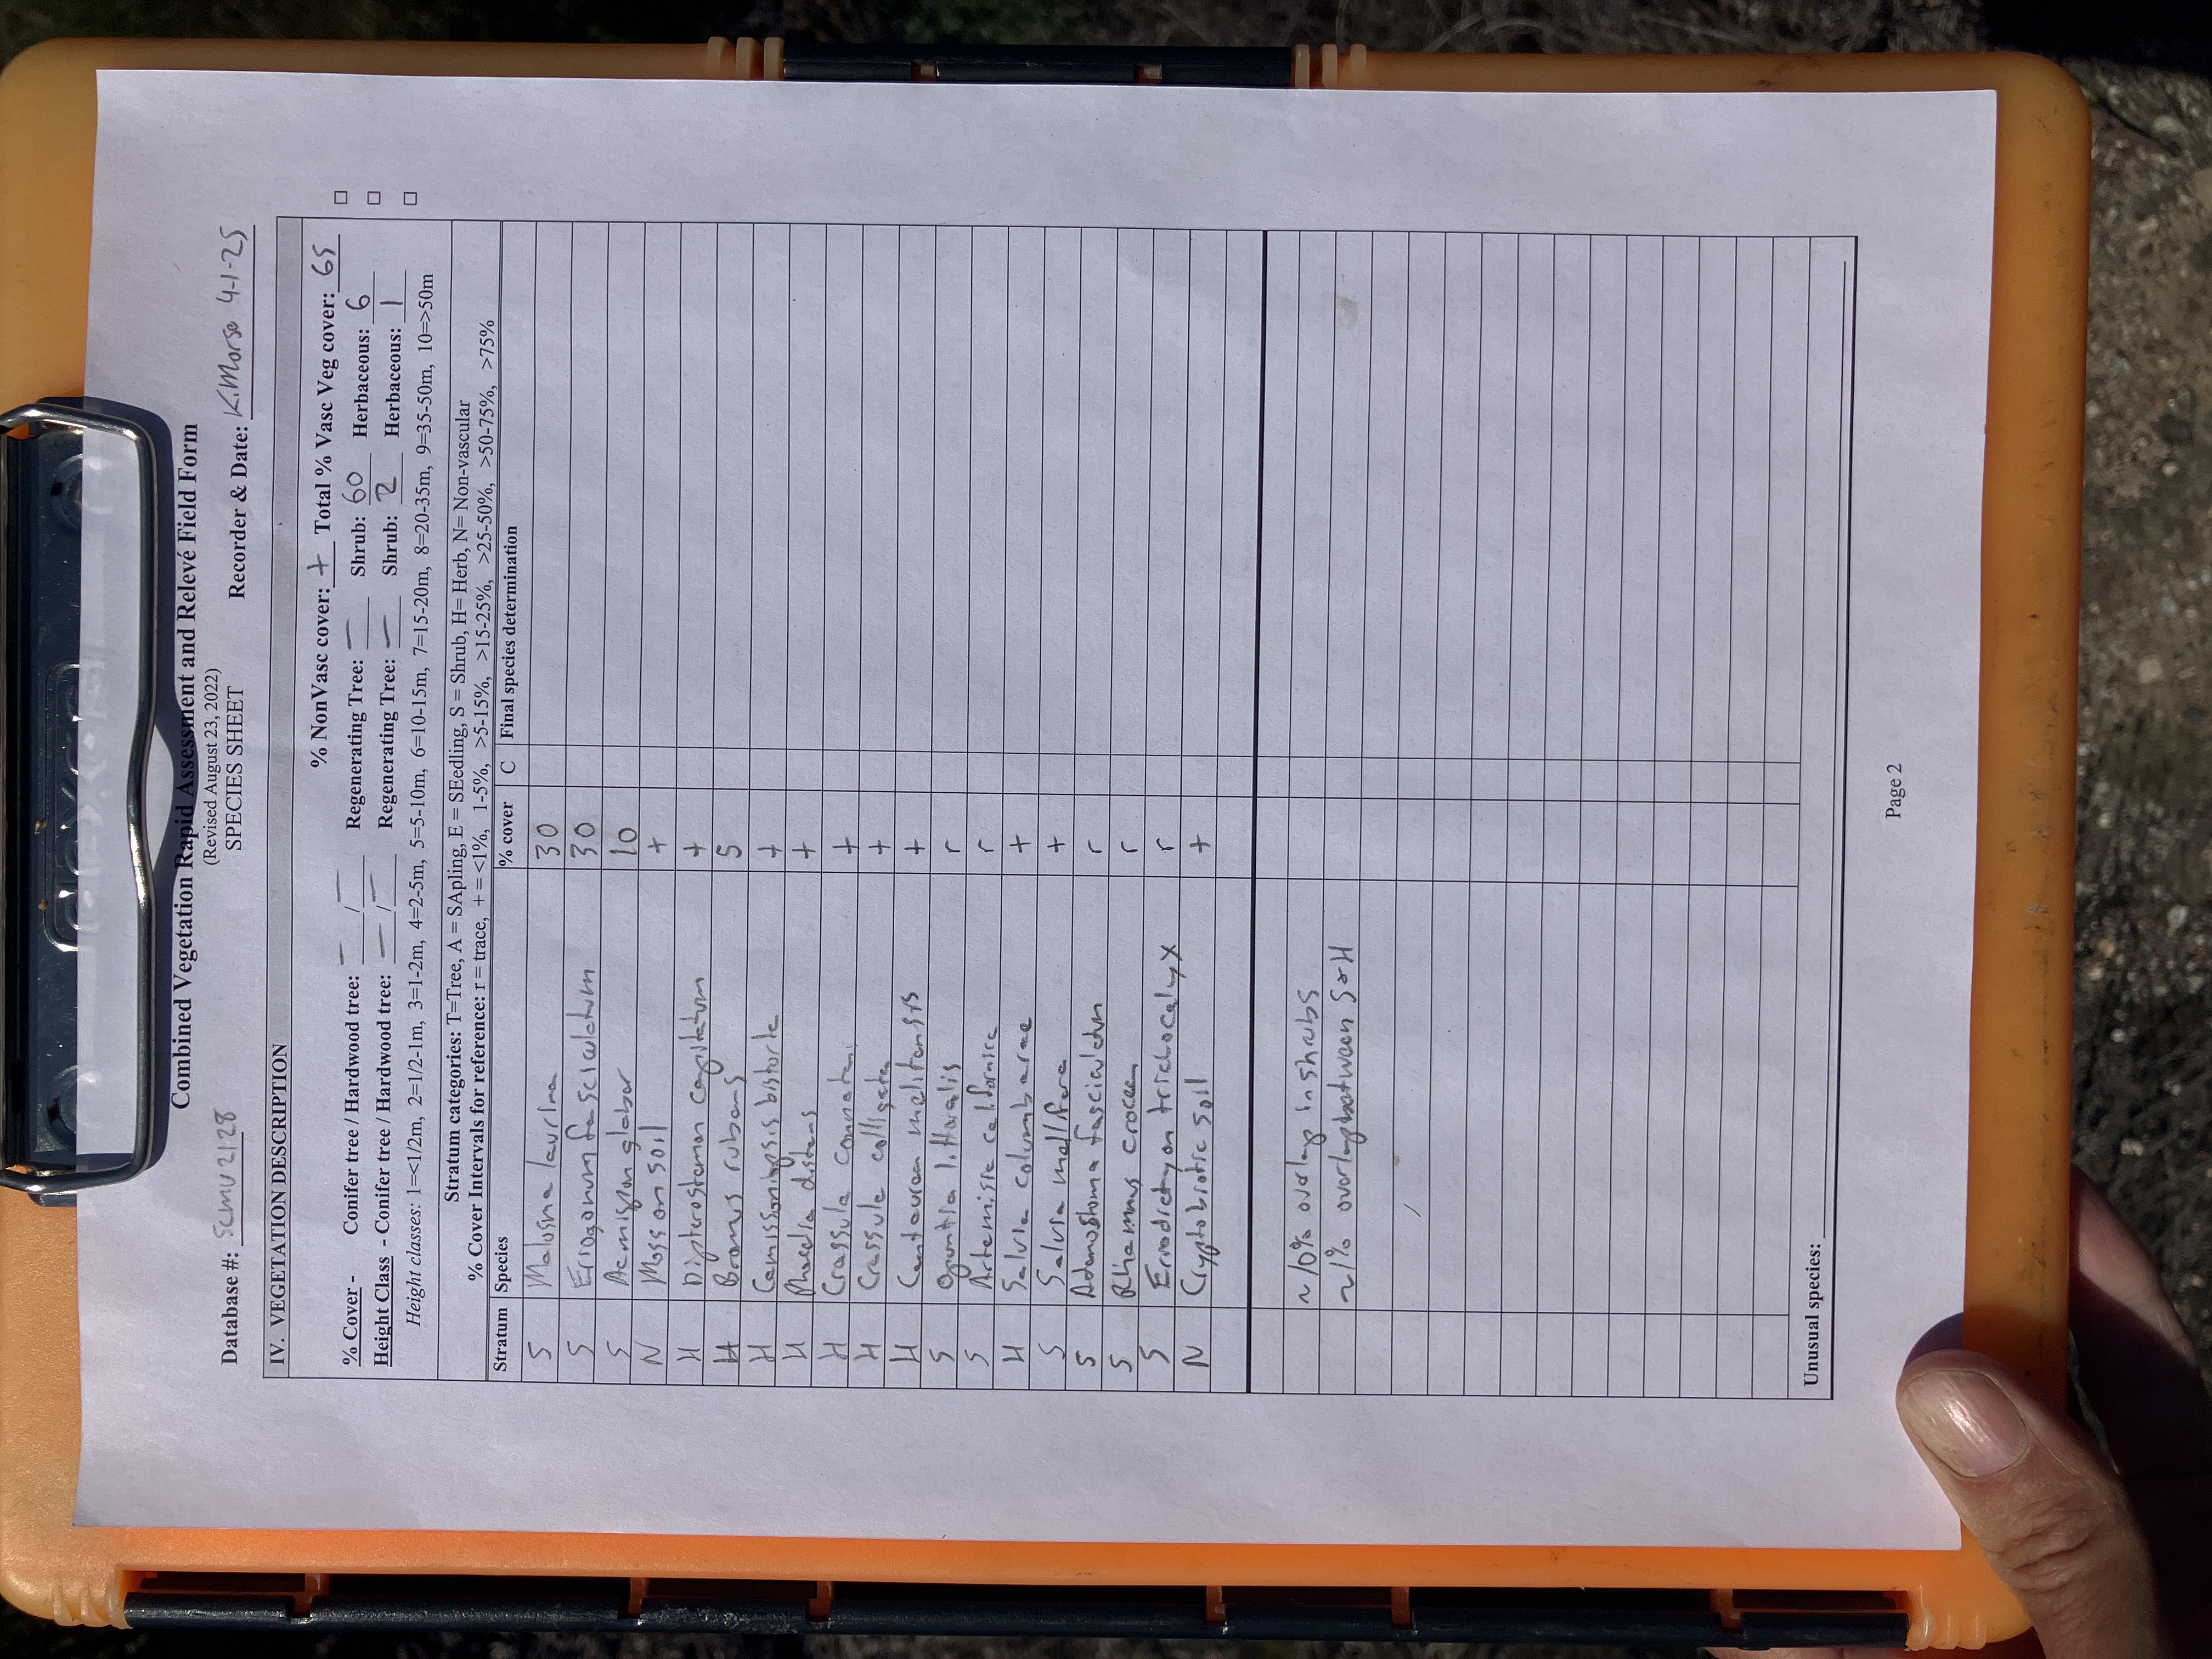 Combined Vegetation Rapid Assessment and Relevé Field Form
(Revised August 23, 2022)
SPECIES SHEET
Database #: SCMU2128 Recorder & Date: K. Morse 4-1-25
IV. VEGETATION DESCRIPTION
% NonVasc cover: + Total % Vasc Veg cover: 65 □
% Cover - Conifer tree / Hardwood tree: — / — Regenerating Tree: — Shrub: 60 Herbaceous: 6 □
Height Class - Conifer tree / Hardwood tree: — / — Regenerating Tree: — Shrub: 2 Herbaceous: 1 □
Height classes: 1=<1/2m, 2=1/2-1m, 3=1-2m, 4=2-5m, 5=5-10m, 6=10-15m, 7=15-20m, 8=20-35m, 9=35-50m, 10=>50m
Stratum categories: T=Tree, A = SApling, E = SEedling, S = Shrub, H= Herb, N= Non-vascular
% Cover Intervals for reference: r = trace, + = <1%, 1-5%, >5-15%, >15-25%, >25-50%, >50-75%, >75%
Stratum Species % cover C Final species determination
S Malosma laurina 30
S Eriogonum fasciculatum 30
S Acmispon glaber 10
N Moss on soil +
H Dipterostemon capitatum +
H Bromus rubens 5
H Camissoniopsis bistorta +
H Phacelia distans +
H Crassula connata +
H Crassula colligata +
H Centaurea melitensis +
S Opuntia littoralis r
S Artemisia californica r
H Salvia columbariae +
S Salvia mellifera +
S Adenostoma fasciculatum r
S Rhamnus crocea r
S Eriodictyon trichocalyx r
N Cryptobiotic soil +
~10% overlap in shrubs
~1% overlap between S & H
Unusual species:
Page 2